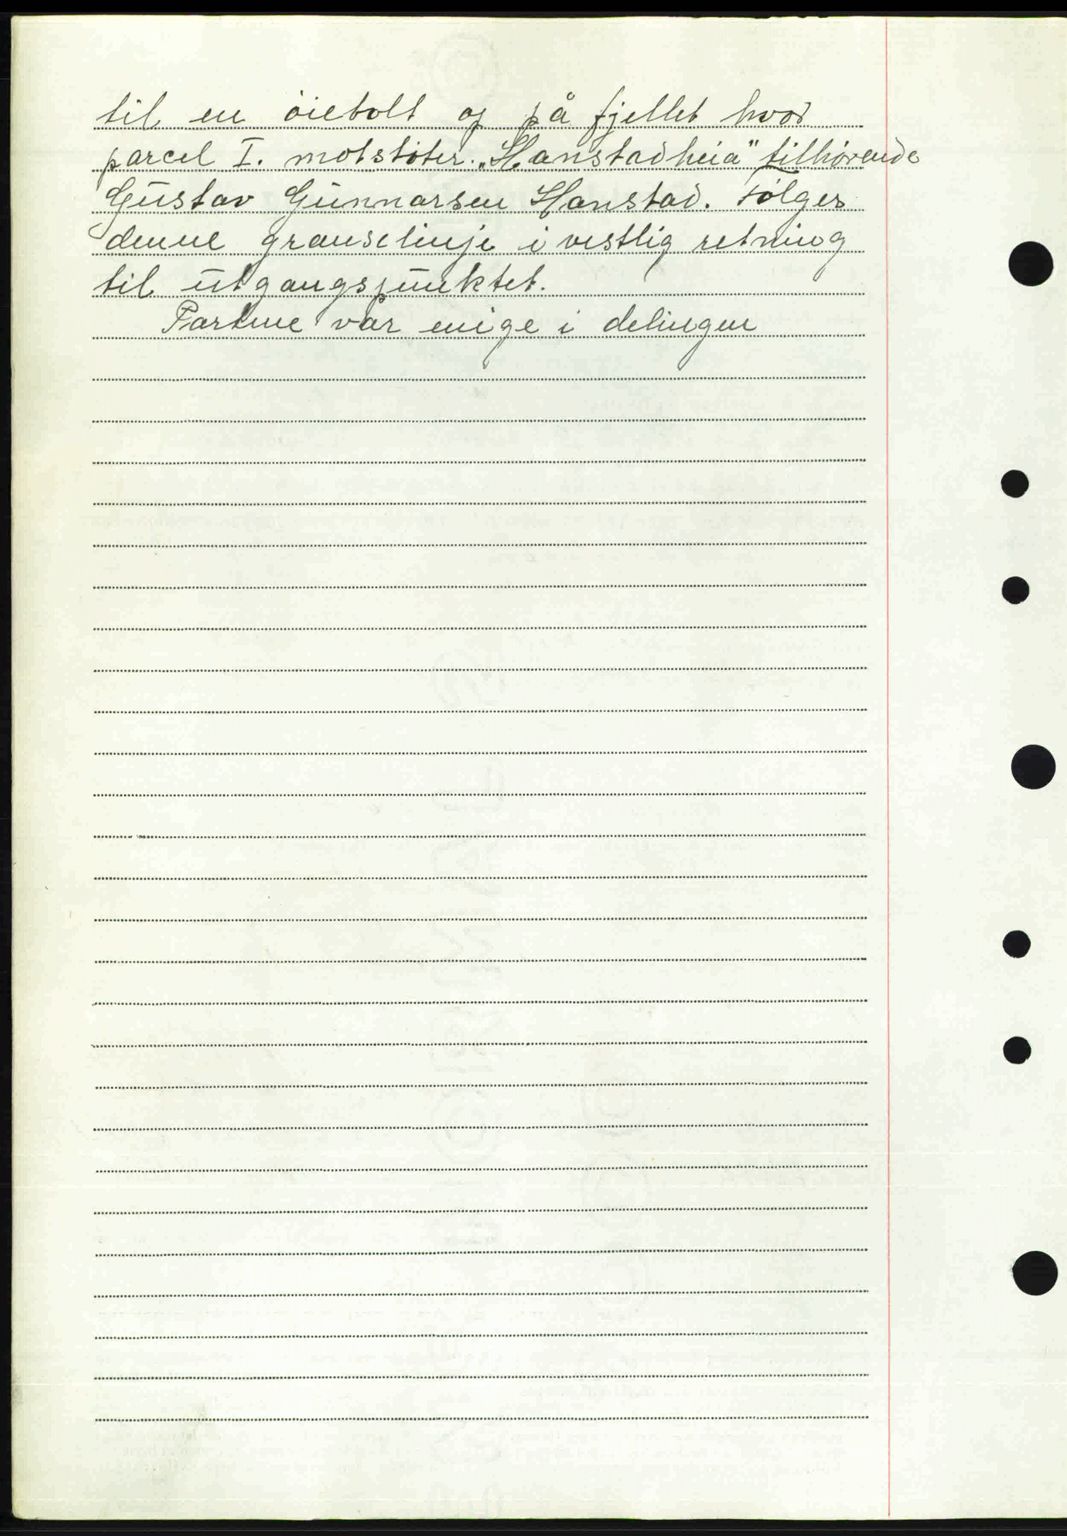 til en öiebolt og på fjellet hvor
parcel I. motstöter „Hanstadheia" tilhörende
Gustav Gunnarsen Hanstad. Fölger
denne granselinje i vestlig retning
til utgangspunktet.
Partene var enige i delingen